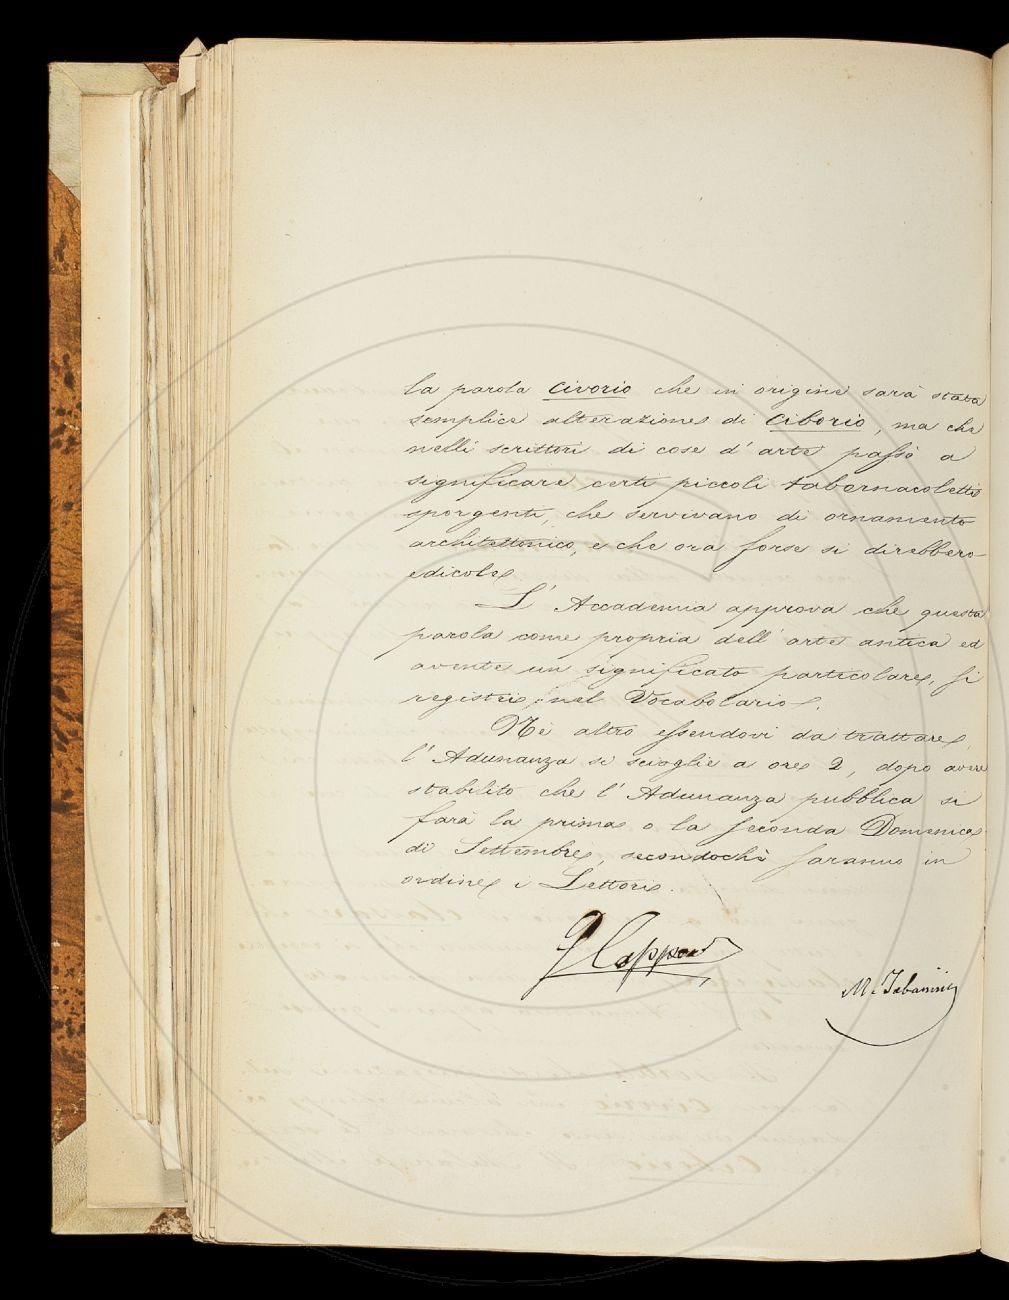 la parola civorio che in origine sarà stata
semplice alterazione di ciborio, ma che
nelli scrittori di cose d'arte passò a
significare certi piccoli tabernacoletti
sporgenti, che servivano di ornamento
architettonico, e che ora forse si direbbero
edicole.
L'Accademia approva che questa
parola come propria dell'arte antica ed
avente un significato particolare, si
registri nel Vocabolario.
Nè altro essendovi da trattare,
l'Adunanza si scioglie a ore 2, dopo avere
stabilito che l'Adunanza pubblica si
farà la prima o la seconda Domenica
di Settembre, secondochè saranno in
ordine i Lettori.
G Capponi
M. Tabarrini